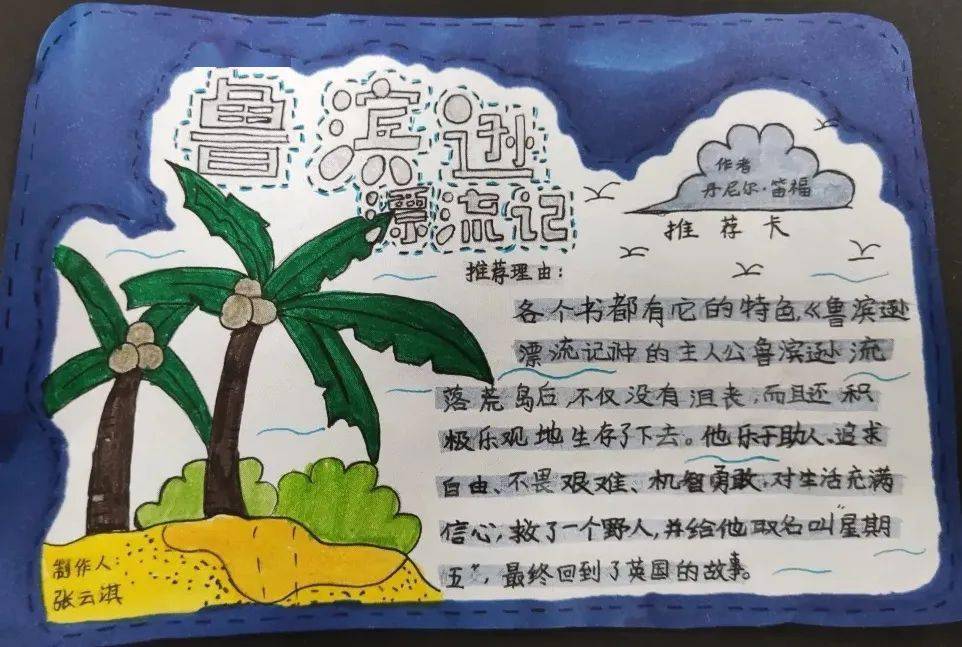 鲁滨逊
漂流记
作者
丹尼尔·笛福
推荐卡
推荐理由:
各个书都有它的特色,《鲁滨逊
漂流记》中的主人公鲁滨逊流
落荒岛后,不仅没有沮丧,而且还积
极乐观地生存了下去。他乐于助人、追求
自由、不畏艰难、机智勇敢,对生活充满
信心,救了一个野人,并给他取名叫“星期
五”,最终回到了英国的故事。
制作人:
张云淇